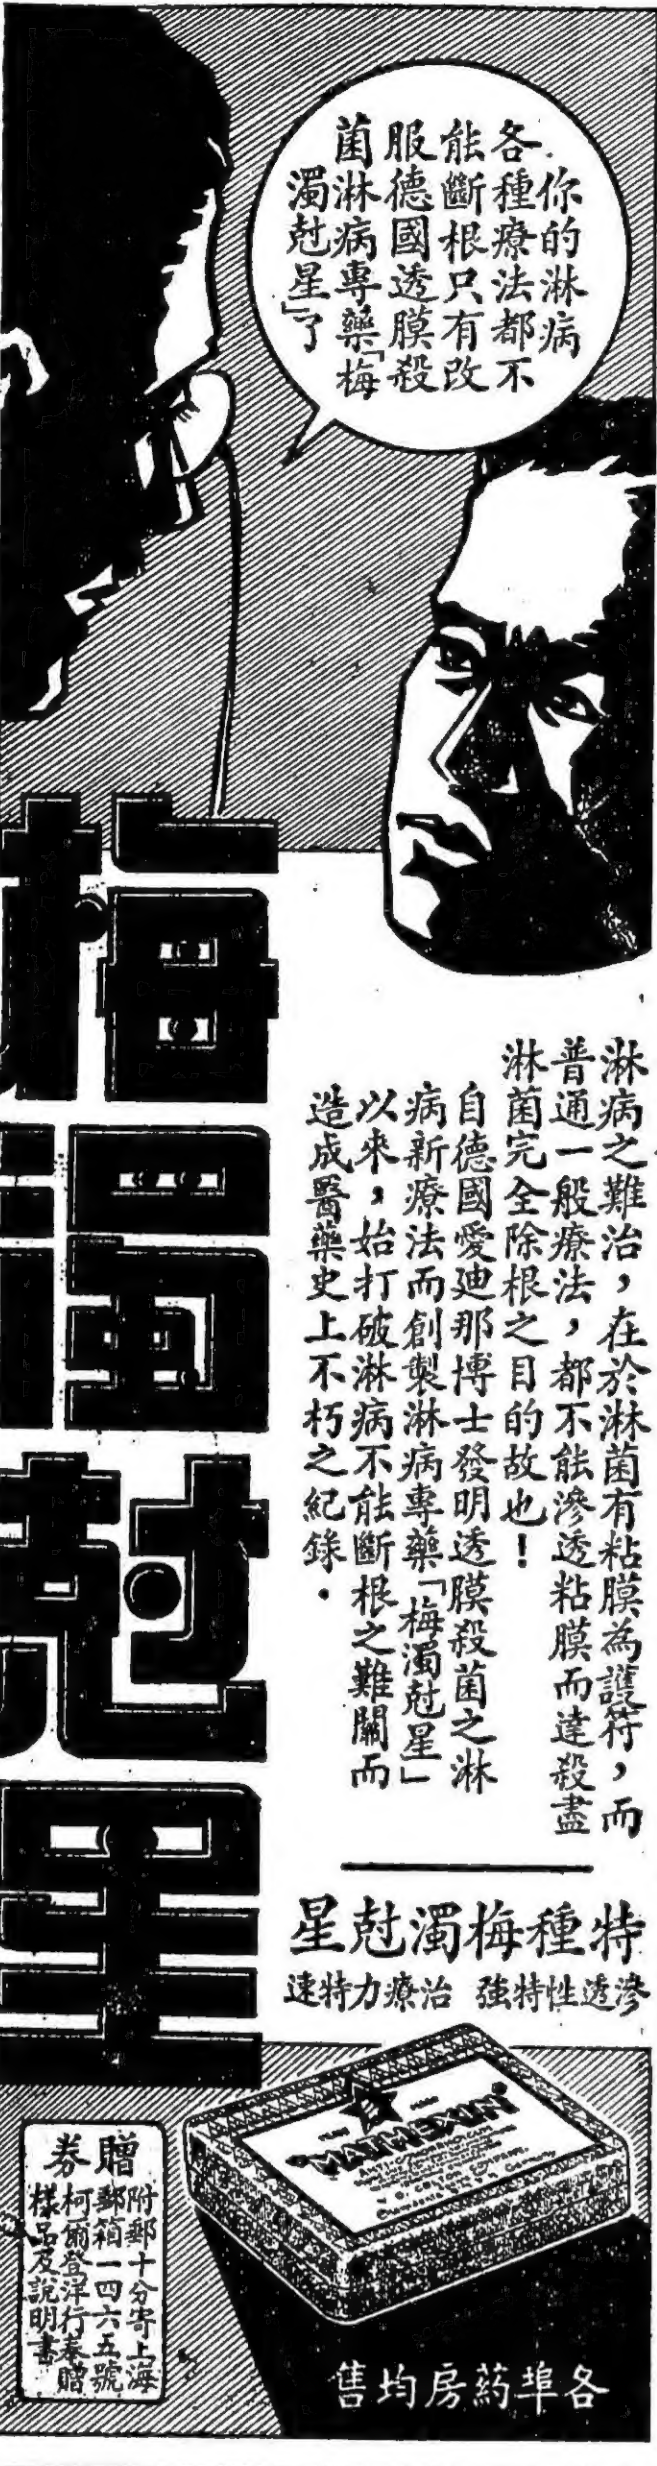 你的淋病
各種療法都不
能斷根只有改
服德國透膜殺
菌淋病專藥「梅
濁尅星」了
梅濁尅星
淋病之難治，在於淋菌有粘膜為護符，而
普通一般療法，都不能滲透粘膜而達殺盡
淋菌完全除根之目的故也！
自德國愛廸那博士發明透膜殺菌之淋
病新療法而創製淋病專藥「梅濁尅星」
以來，始打破淋病不能斷根之難關而
造成醫藥史上不朽之紀錄．
特種梅濁尅星
滲透性特強 治療力特速
贈券
附郵十分寄上海
郵箱一四六五號
柯爾登洋行奉贈
樣品及說明書
各埠葯房均售